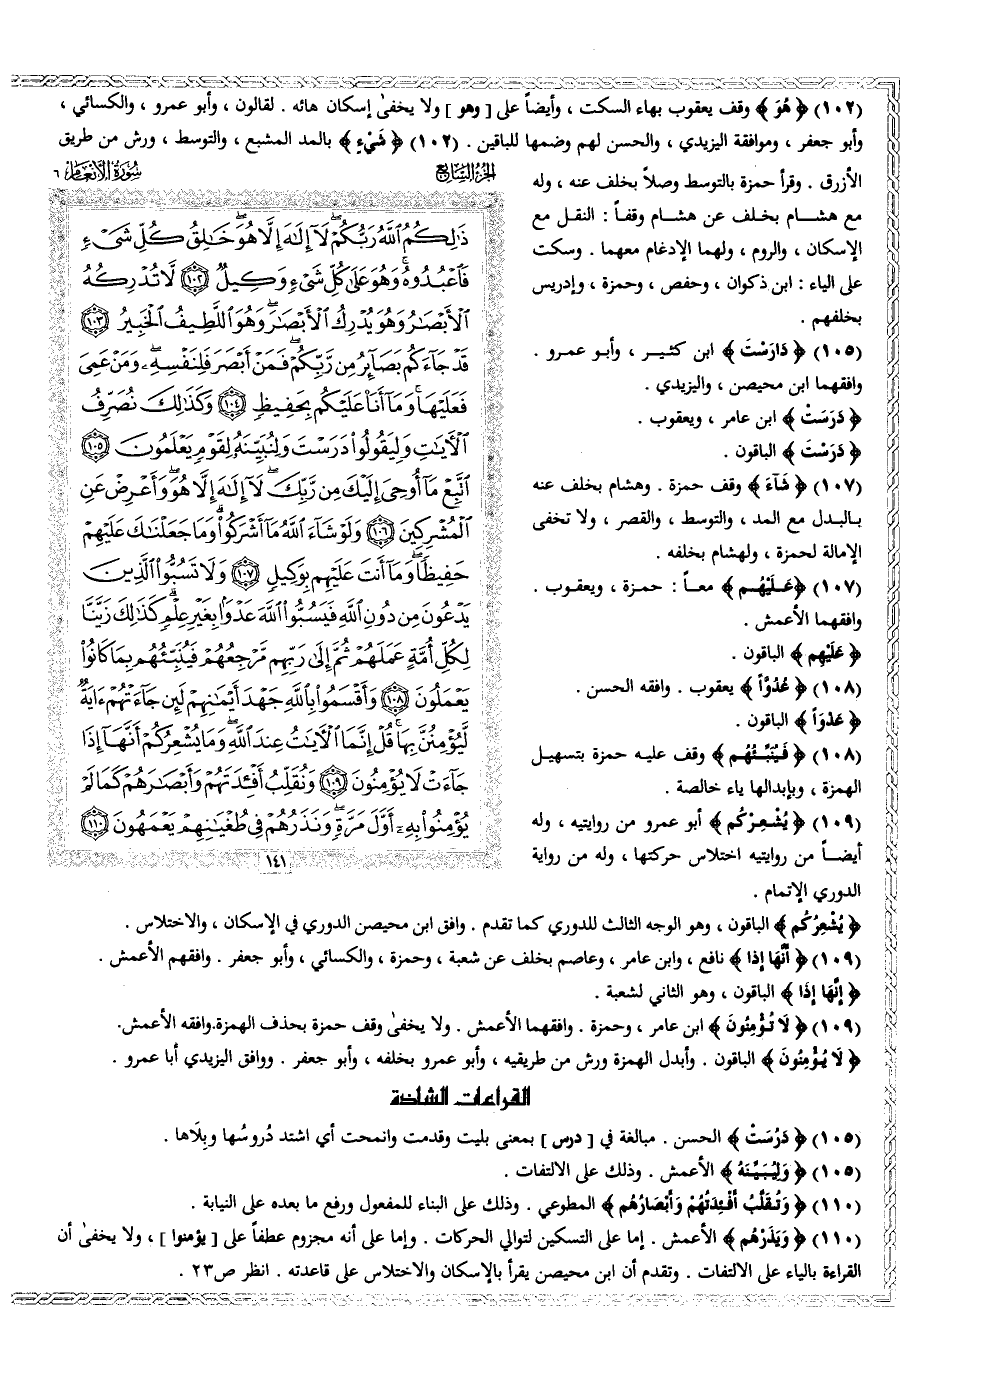 (١٠٢) ﴿ هُوَ ﴾ وقف يعقوب بهاء السكت ، وأيضاً على [ وهو ] ولا يخفىٰ إسكان هائه . لقالون ، وأبو عمرو ، والكسائي ،
وأبو جعفر ، وموافقة اليزيدي ، والحسن لهم وضمها للباقين . (١٠٢) ﴿ شَيْءٍ ﴾ بالمد المشبع ، والتوسط ، ورش من طريق
الأزرق . وقرأ حمزة بالتوسط وصلاً بخلف عنه ، وله
مع هشام بخلف عن هشام وقفاً : النقل مع
الإسكان ، والروم ، ولهما الإدغام معهما . وسكت
على الياء : ابن ذكوان ، وحفص ، وحمزة ، وإدريس
بخلفهم .
(١٠٥) ﴿ دَارَسْتَ ﴾ ابن كثير ، وأبو عمرو .
وافقهما ابن محيصن ، واليزيدي .
﴿ دَرَسَتْ ﴾ ابن عامر ، ويعقوب .
﴿ دَرَسْتَ ﴾ الباقون .
(١٠٧) ﴿ شَآءَ ﴾ وقف حمزة . وهشام بخلف عنه
بالبدل مع المد ، والتوسط ، والقصر ، ولا تخفى
الإمالة لحمزة ، ولهشام بخلفه .
(١٠٧) ﴿عَلَيْهُم ﴾ معاً : حمزة ، ويعقوب .
وافقهما الأعمش .
﴿ عَلَيْهِم ﴾ الباقون .
(١٠٨) ﴿ عُدُوّاً ﴾ يعقوب . وافقه الحسن .
﴿ عَدْوَاً ﴾ الباقون .
(١٠٨) ﴿ فَيُنَبِّئُهُم ﴾ وقف عليه حمزة بتسهيل
الهمزة ، وبإبدالها ياء خالصة .
(١٠٩) ﴿ يُشْعِرْكُم ﴾ أبو عمرو من روايتيه ، وله
أيضاً من روايتيه اختلاس حركتها ، وله من رواية
الدوري الإتمام .
الجزء السابع
سورة الأنعام ٦
ذَٰلِكُمُ ٱللَّهُ رَبُّكُمْ ۖ لَآ إِلَٰهَ إِلَّا هُوَ ۖ خَٰلِقُ كُلِّ شَىْءٍ
فَٱعْبُدُوهُ ۚ وَهُوَ عَلَىٰ كُلِّ شَىْءٍ وَكِيلٌ ۝١٠٢ لَّا تُدْرِكُهُ
ٱلْأَبْصَٰرُ وَهُوَ يُدْرِكُ ٱلْأَبْصَٰرَ ۖ وَهُوَ ٱللَّطِيفُ ٱلْخَبِيرُ ۝١٠٣
قَدْ جَآءَكُم بَصَآئِرُ مِن رَّبِّكُمْ ۖ فَمَنْ أَبْصَرَ فَلِنَفْسِهِۦ ۖ وَمَنْ عَمِىَ
فَعَلَيْهَا ۚ وَمَآ أَنَا۠ عَلَيْكُم بِحَفِيظٍ ۝١٠٤ وَكَذَٰلِكَ نُصَرِّفُ
ٱلْءَايَٰتِ وَلِيَقُولُوا۟ دَرَسْتَ وَلِنُبَيِّنَهُۥ لِقَوْمٍ يَعْلَمُونَ ۝١٠٥
ٱتَّبِعْ مَآ أُوحِىَ إِلَيْكَ مِن رَّبِّكَ ۖ لَآ إِلَٰهَ إِلَّا هُوَ ۖ وَأَعْرِضْ عَنِ
ٱلْمُشْرِكِينَ ۝١٠٦ وَلَوْ شَآءَ ٱللَّهُ مَآ أَشْرَكُوا۟ ۗ وَمَا جَعَلْنَٰكَ عَلَيْهِمْ
حَفِيظًا ۖ وَمَآ أَنتَ عَلَيْهِم بِوَكِيلٍ ۝١٠٧ وَلَا تَسُبُّوا۟ ٱلَّذِينَ
يَدْعُونَ مِن دُونِ ٱللَّهِ فَيَسُبُّوا۟ ٱللَّهَ عَدْوًۢا بِغَيْرِ عِلْمٍ ۗ كَذَٰلِكَ زَيَّنَّا
لِكُلِّ أُمَّةٍ عَمَلَهُمْ ثُمَّ إِلَىٰ رَبِّهِم مَّرْجِعُهُمْ فَيُنَبِّئُهُم بِمَا كَانُوا۟
يَعْمَلُونَ ۝١٠٨ وَأَقْسَمُوا۟ بِٱللَّهِ جَهْدَ أَيْمَٰنِهِمْ لَئِن جَآءَتْهُمْ ءَايَةٌ
لَّيُؤْمِنُنَّ بِهَا ۚ قُلْ إِنَّمَا ٱلْءَايَٰتُ عِندَ ٱللَّهِ ۖ وَمَا يُشْعِرُكُمْ أَنَّهَآ إِذَا
جَآءَتْ لَا يُؤْمِنُونَ ۝١٠٩ وَنُقَلِّبُ أَفْـِٔدَتَهُمْ وَأَبْصَٰرَهُمْ كَمَا لَمْ
يُؤْمِنُوا۟ بِهِۦٓ أَوَّلَ مَرَّةٍ وَنَذَرُهُمْ فِى طُغْيَٰنِهِمْ يَعْمَهُونَ ۝١١٠
١٤١
﴿ يُشْعِرُكُم ﴾ الباقون ، وهو الوجه الثالث للدوري كما تقدم . وافق ابن محيصن الدوري في الإسكان ، والاختلاس .
(١٠٩) ﴿ أَنَّهَا إِذَا ﴾ نافع ، وابن عامر ، وعاصم بخلف عن شعبة ، وحمزة ، والكسائي ، وأبو جعفر . وافقهم الأعمش .
﴿ إِنَّهَا إِذَا ﴾ الباقون ، وهو الثاني لشعبة .
(١٠٩) ﴿ لَا تُؤْمِنُونَ ﴾ ابن عامر ، وحمزة . وافقهما الأعمش . ولا يخفىٰ وقف حمزة بحذف الهمزة.وافقه الأعمش.
﴿ لَا يُؤْمِنُونَ ﴾ الباقون . وأبدل الهمزة ورش من طريقيه ، وأبو عمرو بخلفه ، وأبو جعفر . ووافق اليزيدي أبا عمرو .
القراءات الشاذة
(١٠٥) ﴿ دَرُسَتْ ﴾ الحسن . مبالغة في [ درس ] بمعنى بليت وقدمت وانمحت أي اشتد دُروسُها وبِلَاها .
(١٠٥) ﴿ وَلِيُبَيِّنَهُ ﴾ الأعمش . وذلك على الالتفات .
(١١٠) ﴿ وَتُقَلَّبُ أَفْئِدَتُهُمْ وَأَبْصَارُهُم ﴾ المطوعي . وذلك على البناء للمفعول ورفع ما بعده على النيابة .
(١١٠) ﴿ وَيَذَرْهُم ﴾ الأعمش . إما على التسكين لتوالي الحركات . وإما على أنه مجزوم عطفاً على [ يؤمنوا ] ، ولا يخفىٰ أن
القراءة بالياء على الالتفات . وتقدم أن ابن محيصن يقرأ بالإسكان والاختلاس على قاعدته . انظر ص٢٣ .